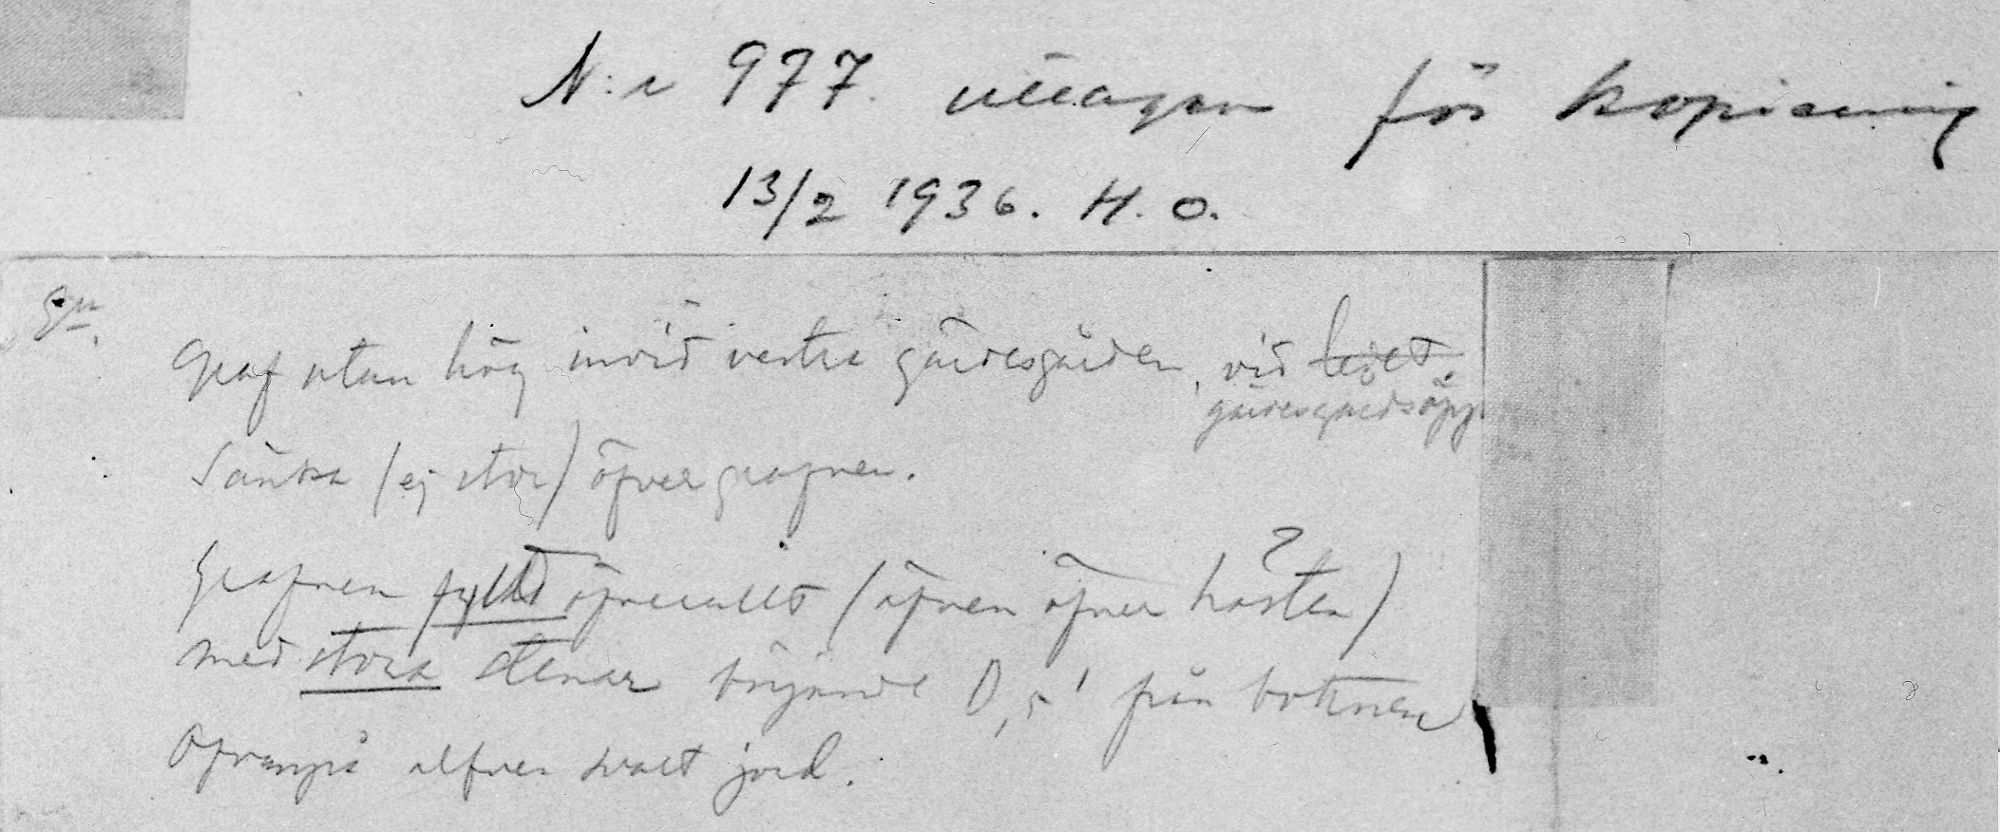 N:r 977. uttagen för kopiering
13/2 1936. H. O.
Graf utan hög invid vestra gärdesgården, vid ledet.
gärdesgårdsöpp
Sänka (ej stor) öfver grafven.
Grafven fylld öfverallt (äfven öfver hästen)
med stora stenar började 0,5' från bottnen
Ofvanpå alfven svart jord.